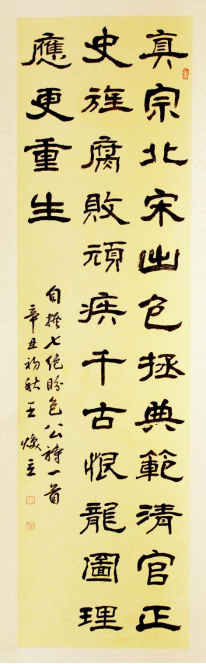 真宗北宋出包拯典範清官正
史旌腐敗頑疾千古恨龍圖理
應更重生
自撰七絕盼包公詩一首
辛丑初秋王焕立